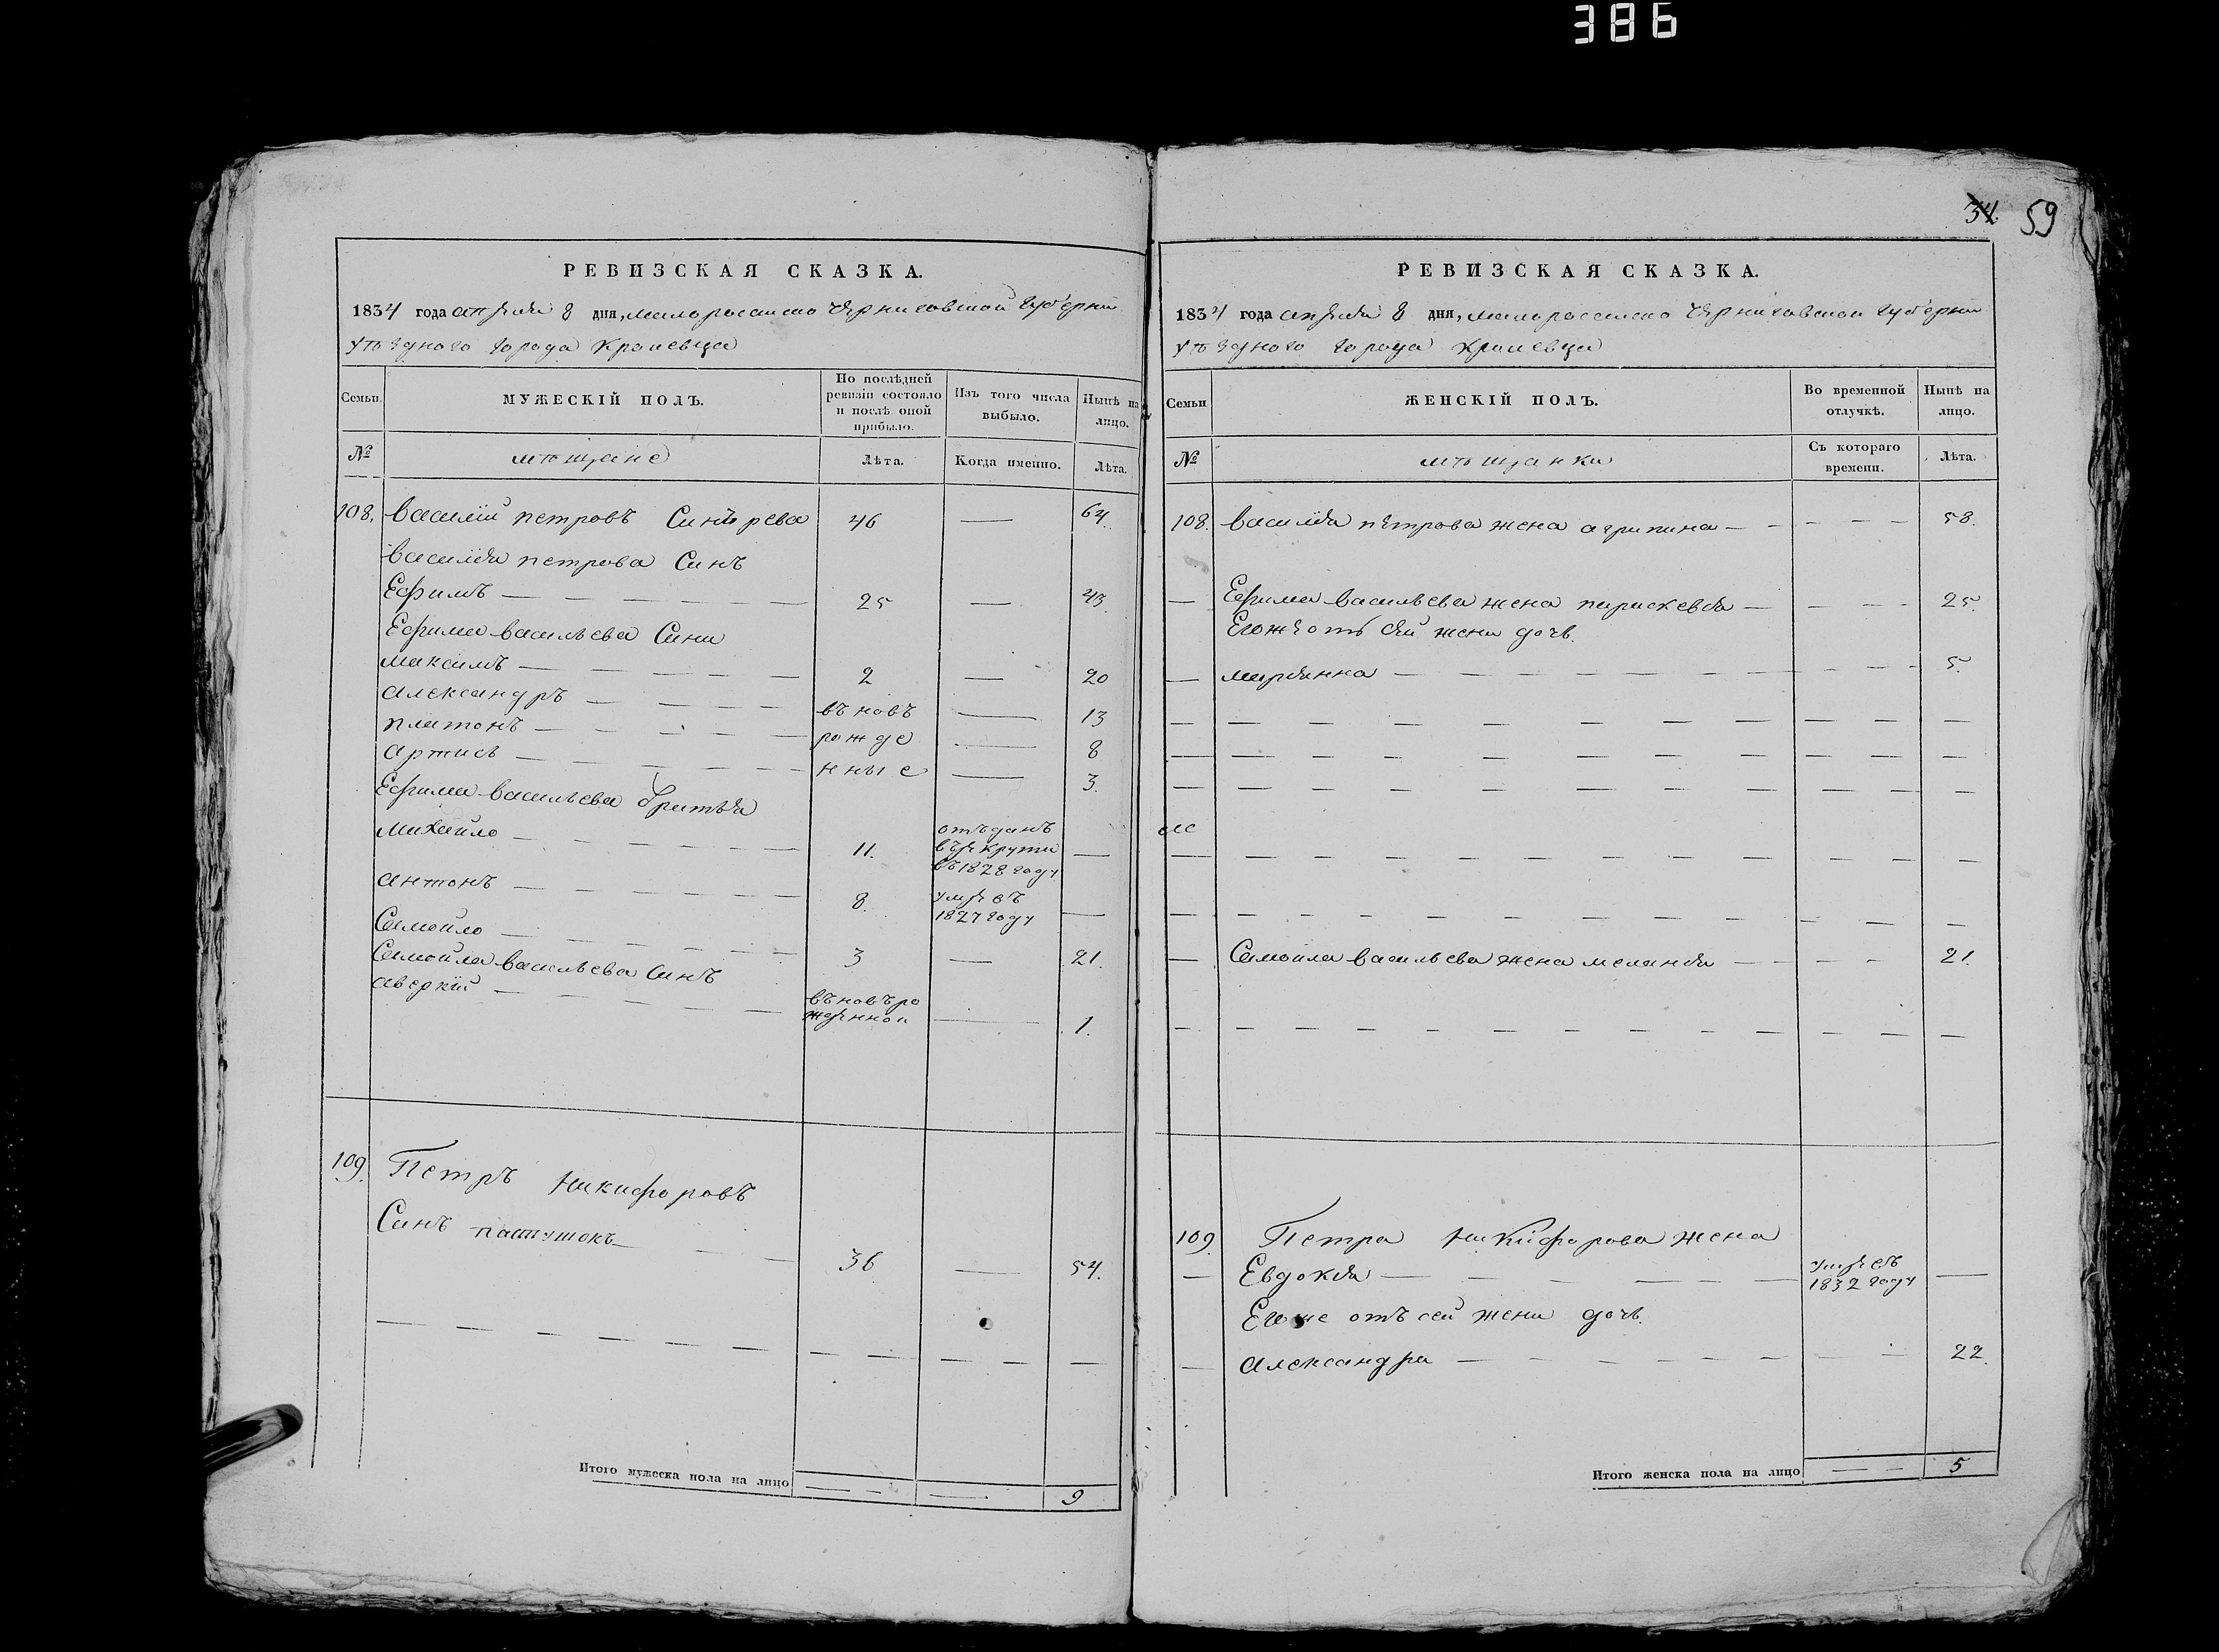 386
34. 59
РЕВИЗСКАЯ СКАЗКА.
1834 года апреля 8 дня, малоросииско Черниговской Губерніи
уѣздного города Кролевца
Семьи.
МУЖЕСКІЙ ПОЛЪ.
По послѣдней ревизіи состояло и послѣ оной прибыло.
Изъ того числа выбыло.
Нынѣ на лицо.
№
мѣщане
Лѣта.
Когда именно.
Лѣта.
108. Василій петровъ 46 — 64.
Василія петрова Синъ
Ефимъ — 25 — 43.
Ефима васильева Сини
максимъ — 2 — 20
александръ — въновъ — 13
платонъ — рожде — 8
артисъ — нные — 3.
Ефима васильева братья
михайло — 11. отъданъ въ рекруты въ 1828 году —
антонъ — 8. умре въ 1827 году —
Самойло — 3 — 21.
Самойла васильева Синъ
аверкій — въновъро жденной — 1.
109. Петръ никифоровъ
Синъ пастушокъ — 36 — 54.
Итого мужеска пола на лицо — — 9
РЕВИЗСКАЯ СКАЗКА.
1834 года апреля 8 дня, малороссииско Черниговской губерніи
уѣздного города кролевца
Семьи
ЖЕНСКІЙ ПОЛЪ.
Во временной отлучкѣ.
Нынѣ на лицо.
№
мѣщанки
Съ котораго времени.
Лѣта.
108. василія петрова жена агрипина — 58.
— Ефима васильева жена параскевія — 25.
Егоже отъ сей жени дочь.
— марьянна — 5.
— Самойла васильева жена меланія — 21.
109. Петра никифорова жена
— Евдокія — умре въ 1832 году —
Егоже отъ сей жени дочь.
— александра — 22.
Итого женска пола на лицо — 5